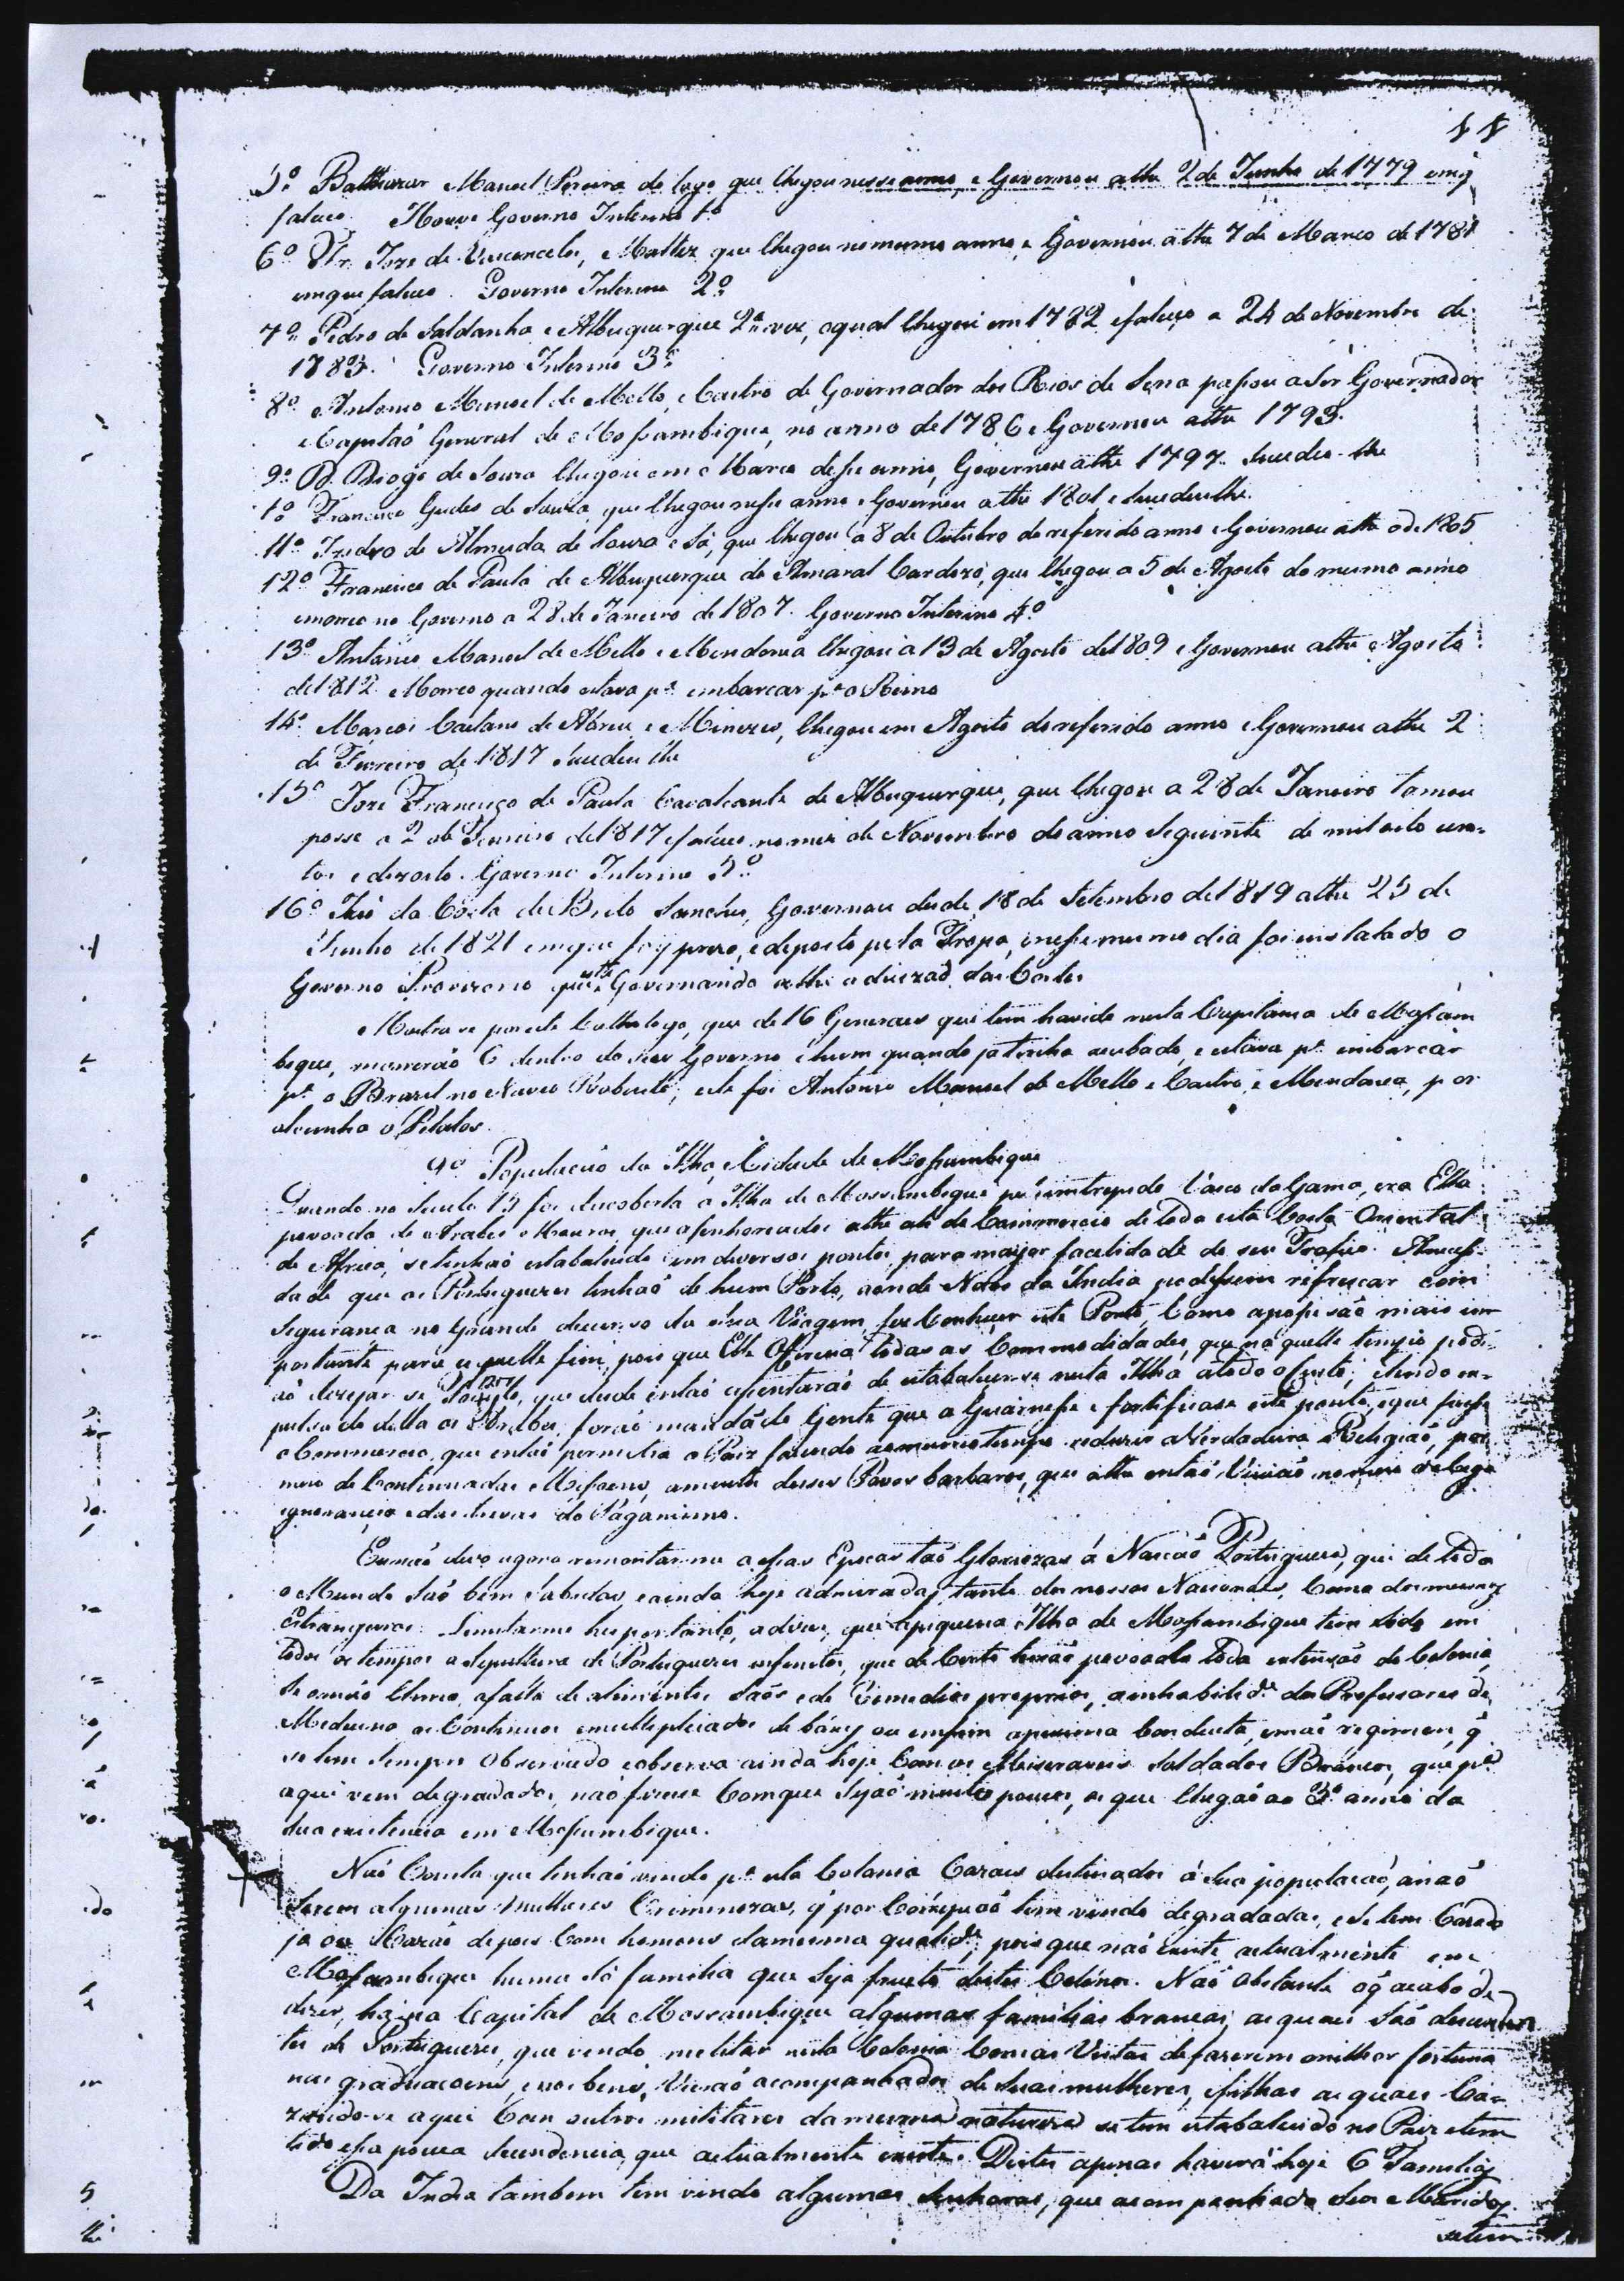 11
5º Balthazar Manoel Pereira do Lago que chegou nesse anno, e Governou athe 2 de Junho de 1779 em q
faleceo. Houve Governo Interino 1º
6º Fr. Joze de Vasconcelos, Maltez que chegou no mesmo anno, e Governou athe 7 de Março de 1781
em que faleceo. Governo Interino 2º
7º Pedro de Saldanha e Albuquerque 2ª vez, o qual chegou em 1782 e faleceo a 24 de Novembro de
1783. Governo Interino 3º
8º Antonio Manoel de Mello, e Castro de Governador dos Rios de Sena passou a Ser Governador
e Capitaõ General de Mossambique, no anno de 1786 e Governou athe 1793.
9º D. Diogo de Souza chegou em Março desse anno, Governou athe 1797. Sucedeo-lhe
10 Francisco Guedes de Souza, que chegou nesse anno e Governou athe 1801 e Sucedeulhe.
11º Izidro de Almeida de Souza e Sá, que chegou a 8 de Outubro do referido anno e Governou athe o de 1805
12º Francisco de Paula de Albuquerque do Amaral Cardozo, que chegou a 5 de Agosto do mesmo anno
e morreo no Governo a 28 de Janeiro de 1807. Governo Interino 4º
13º Antonio Manoel de Mello e Mendonca chegou a 13 de Agosto de 1809 e Governou athe Agosto
de 1812. Morreo quando estava pª embarcar pª o Reino
14º Marcos Caetano de Abreu, e Menezes, chegou em Agosto do referido anno e Governou athe 2
de Fevreiro de 1817 Sucedeu lhe
15º Joze Francisco de Paula Cavalcante de Albuquerque, que chegou a 28 de Janeiro tomou
posse a 2 de Fevreiro de 1817 e faleceo no mez de Novembro do anno Seguinte de mil oito cen-
tos e dezoito. Governo Interino 5º
16º Joaõ da Costa de Brito Sanches, Governou desde 18 de Setembro de 1819 athe 25 de
Junho de 1821 em que foy prezo, e deposto pela Tropa, e nesse mesmo dia foi instalado o
Governo Provizorio que está Governando athe a decizaõ das Cortes
Mostra se por este Cathalogo, que de 16 Generaes que tem havido nesta Capitania de Mossam
bique, morreraõ 6 dentro do seu Governo e hum quando ja tinha acabado, e estava pª embarcar
pª o Brazil no Navio; este foi Antonio Manoel de Mello e Castro, e Mendonca, por
alcunha o Pilatos.
4º Populacaõ da Ilha, e Cidade de Mossambique
Quando no Seculo 15 foi descoberta a Ilha de Mossambique pelo intrepido Vasco da Gama, era Ella
povoada de Arabes e Mouros que asenhoreados athe ali do Commercio de toda esta Costa Oriental
de Africa, se tinhaõ estabalecido em diversos pontos para mayor facelidade do seu Trafico. A necess-
dade que os Portuguezes tinhaõ de hum Porto, aonde Naos da India podessem refrescar com
Seguranca no grande decurso da sua Viagem, fez Conhecer este Ponto, Como a possessaõ mais im
portante para aquelle fim, pois que Ella Oferecia todas as Commodidades, que naquelle tempo podi-
aõ dezejar se. Por isto, que desde entaõ asentaraõ de estabalecer-se nesta Ilha a todo o custo; e Sendo ex-
pulsado della os Arabes foraõ mandado Gente que a Guarnesse e fortificase este ponto, e que fizesse
o Commercio, que entaõ permitia o Paiz fazendo ao mesmo tempo reduzir a Verdadeira Religiaõ, por
meio de Continuadas Missoens, a mente desses Povos barbaros, que athe entaõ Viviaõ no meio da Cega
ignorancia e das trevas do Paganismo.
Eu naõ devo agora remontar-me a essas Epocas taõ Gloriozas á Nacaõ Portugueza, que de todo
o Mundo Saõ bem Sabidas, e ainda hoje admiradas, tanto dos nossos Nacionaes, Como dos mesmos
Estrangeiros. Limitarme hei portanto, a dizer, que a pequena Ilha de Mossambique tem sido em
todos os tempos a Sepultura de Portuguezes infinitos, que de Certo teriaõ povoada toda extensaõ da Colonia,
Se o mão Clima, a falta de alimentos Saõs e de remedios proprios, a inhabilidᵉ dos Professores de
Medecina ou emfim a pessima Conducta, e máo regimen, q̃
se tem Sempre Observado e observa ainda hoje Com os Mizeraveis Soldados Brancos, que pª
aqui vem degradados, naõ fizesse Comque Sejaõ muito poucos, os que chegaõ ao 3º anno da
Sua existencia em Mossambique.
Naõ Consta que tinhaõ vindo pª esta Colonia Cazaes destinados á Sua populacaõ, a naõ
Serem algumas mulheres Criminozas, q̃ por tem vindo degradadas, e Se tem Cazado
ja ou Cazaõ depois Com homens da mesma qualidᵉ, pois que naõ existe actualmente em
Mossambique huma Só familia que Seja fructo destes Colonos. Naõ Obstante o q̃ acabo de
dizer, ha na Capital de Mossambique algumas familias brancas, as quaes Saõ descenden
tes de Portuguezes, que vendo militar nesta Colonia Com as Vistas de fazerem o milhor fortuna
nas graduacoens, e nos bens, Vieraõ acompanhados de Suas mulheres, e filhas as quaes Ca-
zando-se aqui Com outros militares da mesma natureza se tem estabalecido no Paiz e tem
tido essa pouca decendencia, que actualmente existe. Destes apenas haverá hoje 6 Familias
Da India tambem tem vindo algumas Senhoras, que acompanhado Seos Maridos
se tem